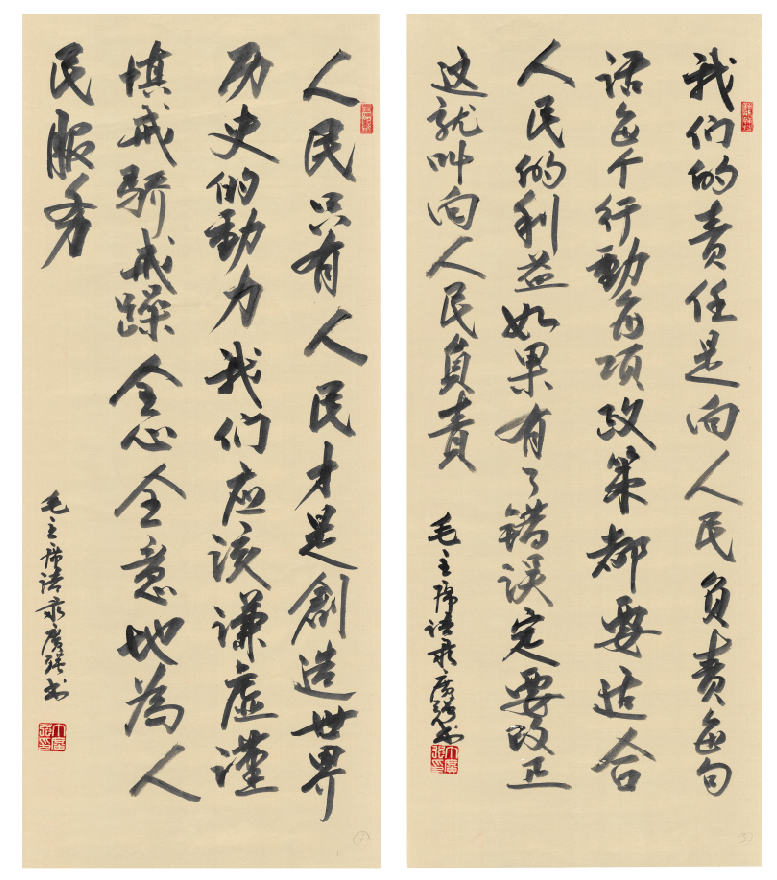 我们的責任是向人民負責每句
话每个行動每项政策都要适合
人民的利益如果有了错误定要改正
这就叫向人民負責
毛主席语录
人民只有人民才是創造世界
历史的動力我们应该谦虚谨
慎戒骄戒躁全心全意地為人
民服务
毛主席语录